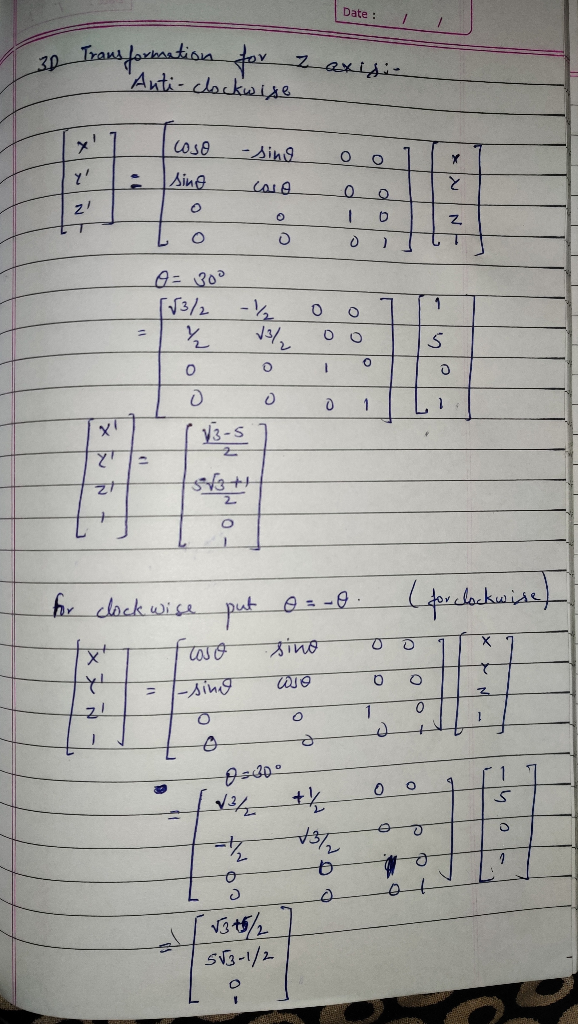 Date : / /
3D Transformation for z axis:-
Anti-clockwise
[x' y' z' 1] = [cosθ -sinθ 0 0
sinθ cosθ 0 0
0 0 1 0
0 0 0 1] [x y z 1]
θ = 30°
= [√3/2 -1/2 0 0
1/2 √3/2 0 0
0 0 1 0
0 0 0 1] [1 5 0 1]
[x' y' z' 1] = [(√3-5)/2
(5√3+1)/2
0
1]
for clockwise put θ = -θ. (for clockwise)
[x' y' z' 1] = [cosθ sinθ 0 0
-sinθ cosθ 0 0
0 0 1 0
0 0 0 1] [x y z 1]
θ = 30°
= [√3/2 +1/2 0 0
-1/2 √3/2 0 0
0 0 0
0 0 0 1] [1 5 0 1]
= [√3+5/2
5√3-1/2
0
1]